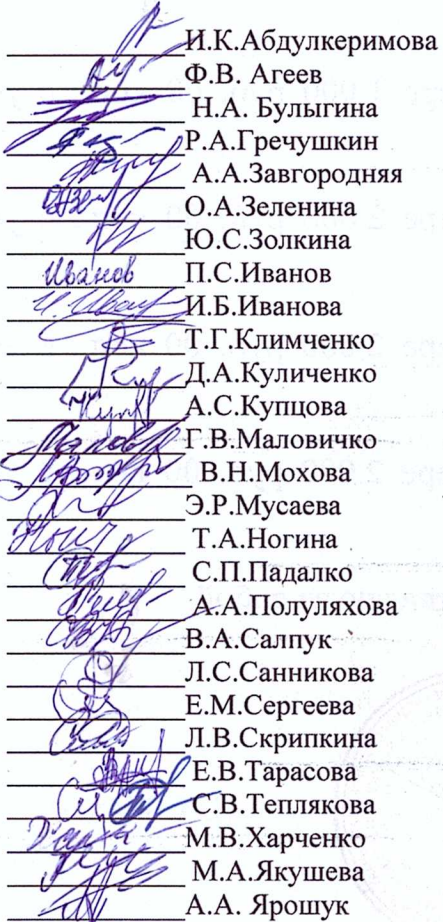 И.К.Абдулкеримова
Ф.В. Агеев
Н.А. Булыгина
Р.А.Гречушкин
А.А.Завгородняя
О.А.Зеленина
Ю.С.Золкина
Иванов П.С.Иванов
И.Б.Иванова
Т.Г.Климченко
Д.А.Куличенко
А.С.Купцова
Г.В.Маловичко
В.Н.Мохова
Э.Р.Мусаева
Т.А.Ногина
С.П.Падалко
А.А.Полуляхова
В.А.Салпук
Л.С.Санникова
Е.М.Сергеева
Л.В.Скрипкина
Е.В.Тарасова
С.В.Теплякова
М.В.Харченко
М.А.Якушева
А.А. Ярошук